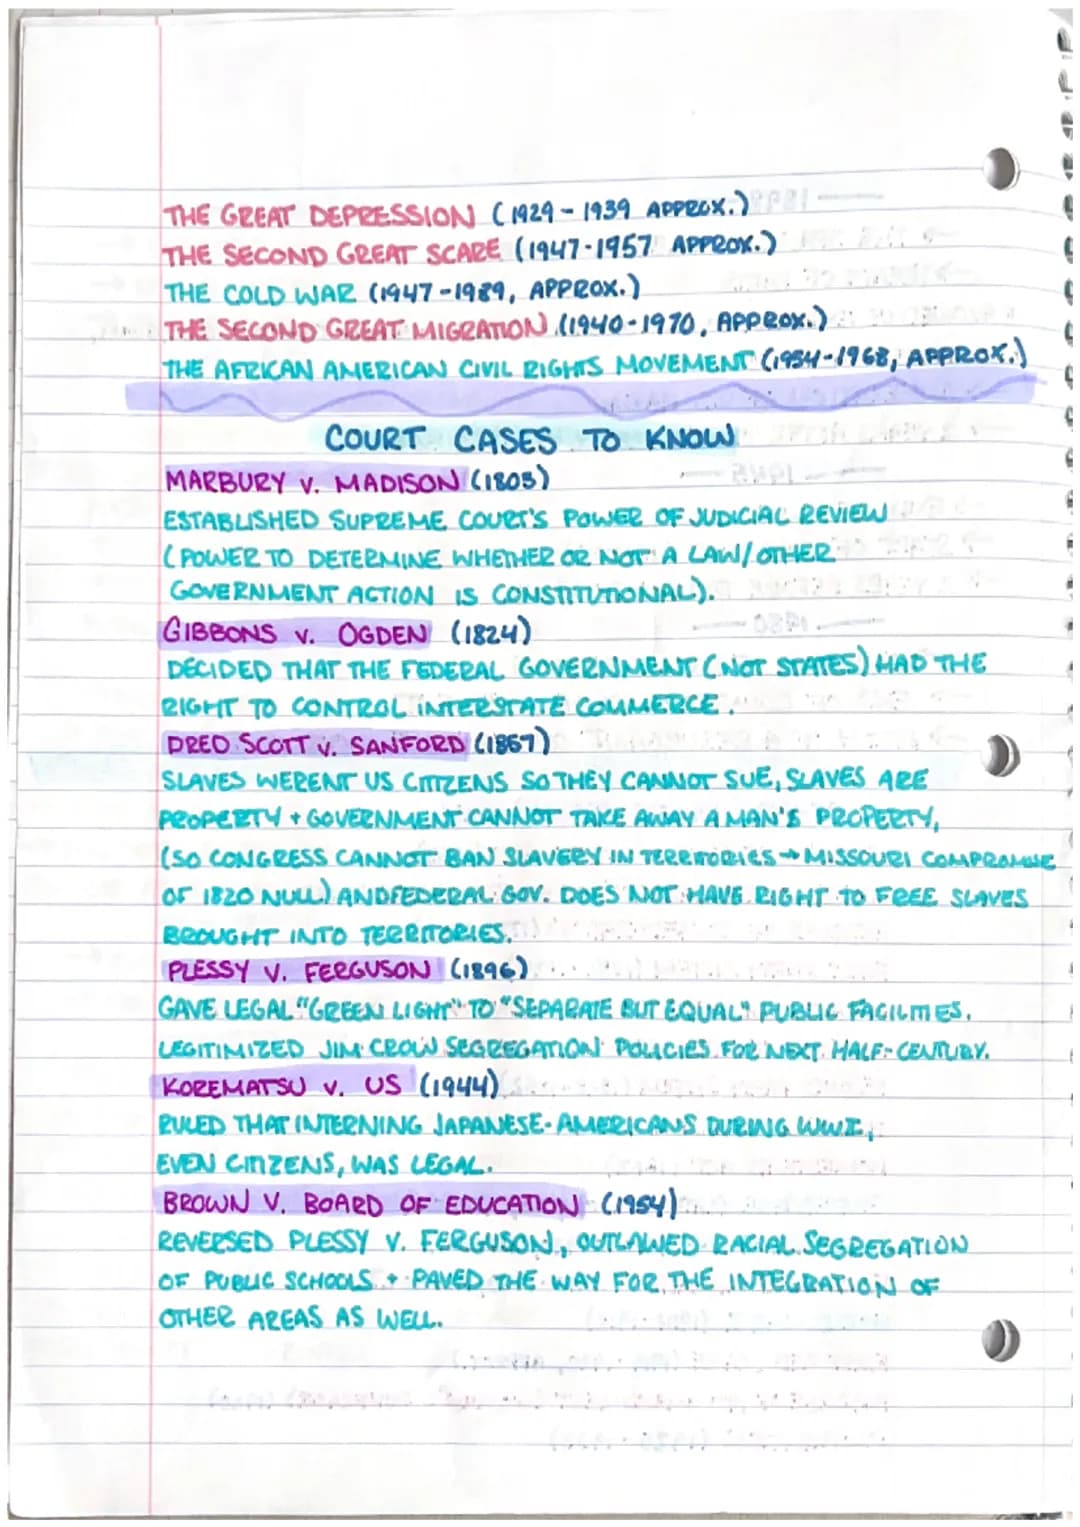 THE GREAT DEPRESSION (1929 - 1939 APPROX.)
THE SECOND GREAT SCARE (1947-1957 APPROX.)
THE COLD WAR (1947-1989, APPROX.)
THE SECOND GREAT MIGRATION (1940-1970, APPROX.)
THE AFRICAN AMERICAN CIVIL RIGHTS MOVEMENT (1954-1968, APPROX.)
COURT CASES TO KNOW
MARBURY V. MADISON (1803)
ESTABLISHED SUPREME COURT'S POWER OF JUDICIAL REVIEW
(POWER TO DETERMINE WHETHER OR NOT A LAW/OTHER
GOVERNMENT ACTION IS CONSTITUTIONAL).
GIBBONS V. OGDEN (1824)
DECIDED THAT THE FEDERAL GOVERNMENT (NOT STATES) HAD THE
RIGHT TO CONTROL INTERSTATE COMMERCE.
DRED SCOTT V. SANFORD (1857)
SLAVES WERENT US CITIZENS SO THEY CANNOT SUE, SLAVES ARE
PROPERTY + GOVERNMENT CANNOT TAKE AWAY A MAN'S PROPERTY,
(SO CONGRESS CANNOT BAN SLAVERY IN TERRITORIES → MISSOURI COMPROMISE
OF 1820 NULL) AND FEDERAL GOV. DOES NOT HAVE RIGHT TO FREE SLAVES
BROUGHT INTO TERRITORIES.
PLESSY V. FERGUSON (1896)
GAVE LEGAL "GREEN LIGHT" TO "SEPARATE BUT EQUAL" PUBLIC FACILITIES.
LEGITIMIZED JIM CROW SEGREGATION POLICIES FOR NEXT HALF-CENTURY.
KOREMATSU V. US (1944)
RULED THAT INTERNING JAPANESE-AMERICANS DURING WWII,
EVEN CITIZENS, WAS LEGAL.
BROWN V. BOARD OF EDUCATION (1954)
REVERSED PLESSY V. FERGUSON, OUTLAWED RACIAL SEGREGATION
OF PUBLIC SCHOOLS + PAVED THE WAY FOR THE INTEGRATION OF
OTHER AREAS AS WELL.